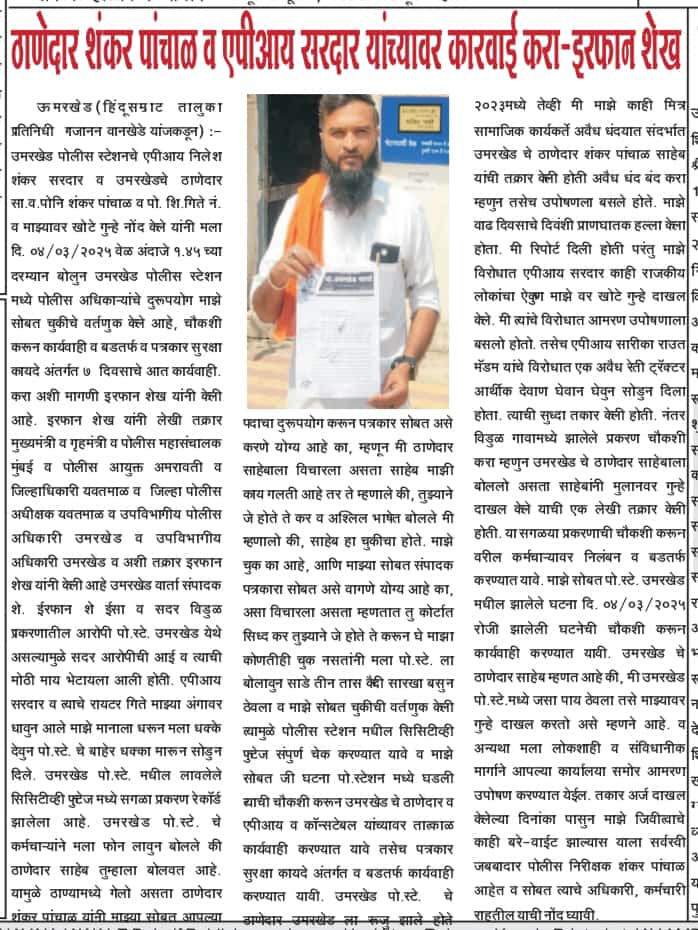 ठाणेदार शंकर पांचाळ व एपीआय सरदार यांच्यावर कारवाई करा-इरफान शेख
ऊमरखेड (हिंदूसम्राट तालुका
प्रतिनिधी गजानन वानखेडे यांजकडून) :-
उमरखेड पोलीस स्टेशनचे एपीआय निलेश
शंकर सरदार व उमरखेडचे ठाणेदार
सा.व.पोनि शंकर पांचाळ व पो. शि.गिते नं.
व माझ्यावर खोटे गुन्हे नोंद केले यांनी मला
दि. ०४/०३/२०२५ वेळ अंदाजे १.४५ च्या
दरम्यान बोलुन उमरखेड पोलीस स्टेशन
मध्ये पोलीस अधिकाऱ्यांचे दुरूपयोग माझे
सोबत चुकीचे वर्तणुक केले आहे, चौकशी
करून कार्यवाही व बडतर्फ व पत्रकार सुरक्षा
कायदे अंतर्गत ७ दिवसाचे आत कार्यवाही.
करा अशी मागणी इरफान शेख यांनी केली
आहे. इरफान शेख यांनी लेखी तक्रार
मुख्यमंत्री व गृहमंत्री व पोलीस महासंचालक
मुंबई व पोलीस आयुक्त अमरावती व
जिल्हाधिकारी यवतमाळ व जिल्हा पोलीस
अधीक्षक यवतमाळ व उपविभागीय पोलीस
अधिकारी उमरखेड व उपविभागीय
अधिकारी उमरखेड व अशी तक्रार इरफान
शेख यांनी केली आहे उमरखेड वार्ता संपादक
शे. ईरफान शे ईसा व सदर विडुळ
प्रकरणातील आरोपी पो.स्टे. उमरखेड येथे
असल्यामुळे सदर आरोपीची आई व त्याची
मोठी माय भेटायला आली होती. एपीआय
सरदार व त्याचे रायटर गिते माझ्या अंगावर
धावुन आले माझे मानाला धरून मला धक्के
देवुन पो.स्टे. चे बाहेर धक्का मारून सोडुन
दिले. उमरखेड पो.स्टे. मधील लावलेले
सिसिटीव्ही फुटेज मध्ये सगळा प्रकरण रेकॉर्ड
झालेला आहे. उमरखेड पो.स्टे. चे
कर्मचाऱ्याने मला फोन लावुन बोलले की
ठाणेदार साहेब तुम्हाला बोलवत आहे.
यामुळे ठाण्यामध्ये गेलो असता ठाणेदार
शंकर पांचाळ यांनी माझ्या सोबत आपल्या
पदाचा दुरूपयोग करून पत्रकार सोबत असे
करणे योग्य आहे का, म्हणून मी ठाणेदार
साहेबाला विचारला असता साहेब माझी
काय गलती आहे तर ते म्हणाले की, तुझ्याने
जे होते ते कर व अश्लिल भाषेत बोलले मी
म्हणालो की, साहेब हा चुकीचा होते. माझे
चुक का आहे, आणि माझ्या सोबत संपादक
पत्रकारा सोबत असे वागणे योग्य आहे का,
असा विचारला असता म्हणतात तु कोर्टात
सिध्द कर तुझ्याने जे होते ते करून घे माझा
कोणतीही चुक नसतांनी मला पो.स्टे. ला
बोलावुन साडे तीन तास कैदी सारखा बसुन
ठेवला व माझे सोबत चुकीची वर्तणुक केली
त्यामुळे पोलीस स्टेशन मधील सिसिटिव्ही
फुटेज संपुर्ण चेक करण्यात यावे व माझे
सोबत जी घटना पो.स्टेशन मध्ये घडली
ह्याची चौकशी करून उमरखेड चे ठाणेदार व
एपीआय व कॉन्सटेबल यांच्यावर तात्काळ
कार्यवाही करण्यात यावे तसेच पत्रकार
सुरक्षा कायदे अंतर्गत व बडतर्फ कार्यवाही
करण्यात यावी. उमरखेड पो.स्टे. चे
ठाणेदार उमरखेड ला रूजु झाले होते
२०२३मध्ये तेव्ही मी माझे काही मित्र
सामाजिक कार्यकर्ते अवैध धंदयात संदर्भात
उमरखेड चे ठाणेदार शंकर पांचाळ साहेब
यांची तक्रार केली होती अवैध धंद बंद करा
म्हणुन तसेच उपोषणाला बसले होते. माझे
वाढ दिवसाचे दिवंशी प्राणघातक हल्ला केला
होता. मी रिपोर्ट दिली होती परंतु माझे
विरोधात एपीआय सरदार काही राजकीय
लोकांचा ऐकुण माझे वर खोटे गुन्हे दाखल
केले. मी त्यांचे विरोधात आमरण उपोषणाला
बसलो होतो. तसेच एपीआय सारीका राउत
मॅडम यांचे विरोधात एक अवैध रेती ट्रॅक्टर
आर्थीक देवाण घेवान घेवुन सोडुन दिला
होता. त्याची सुध्दा तकार केली होती. नंतर
विडुळ गावामध्ये झालेले प्रकरण चौकशी
करा म्हणुन उमरखेड चे ठाणेदार साहेबाला
बोललो असता साहेबांनी मुलानवर गुन्हे
दाखल केले याची एक लेखी तक्रार केली
होती. या सगळया प्रकरणाची चौकशी करून
वरील कर्मचाऱ्यावर निलंबन व बडतर्फ
करण्यात यावे. माझे सोबत पो.स्टे. उमरखेड
मधील झालेले घटना दि. ०४/०३/२०२५
रोजी झालेली घटनेची चौकशी करून
कार्यवाही करण्यात यावी. उमरखेड चे
ठाणेदार साहेब म्हणत आहे की, मी उमरखेड
पो.स्टे.मध्ये जसा पाय ठेवला तसे माझ्यावर
गुन्हे दाखल करतो असे म्हणने आहे. व
अन्यथा मला लोकशाही व संविधानीक
मार्गाने आपल्या कार्यालया समोर आमरण
उपोषण करण्यात येईल. तकार अर्ज दाखल
केलेल्या दिनांका पासुन माझे जिवीत्वाचे
काही बरे-वाईट झाल्यास याला सर्वस्वी
जबबादार पोलीस निरीक्षक शंकर पांचाळ
आहेत व सोबत त्याचे अधिकारी, कर्मचारी
राहतील याची नोंद घ्यावी.